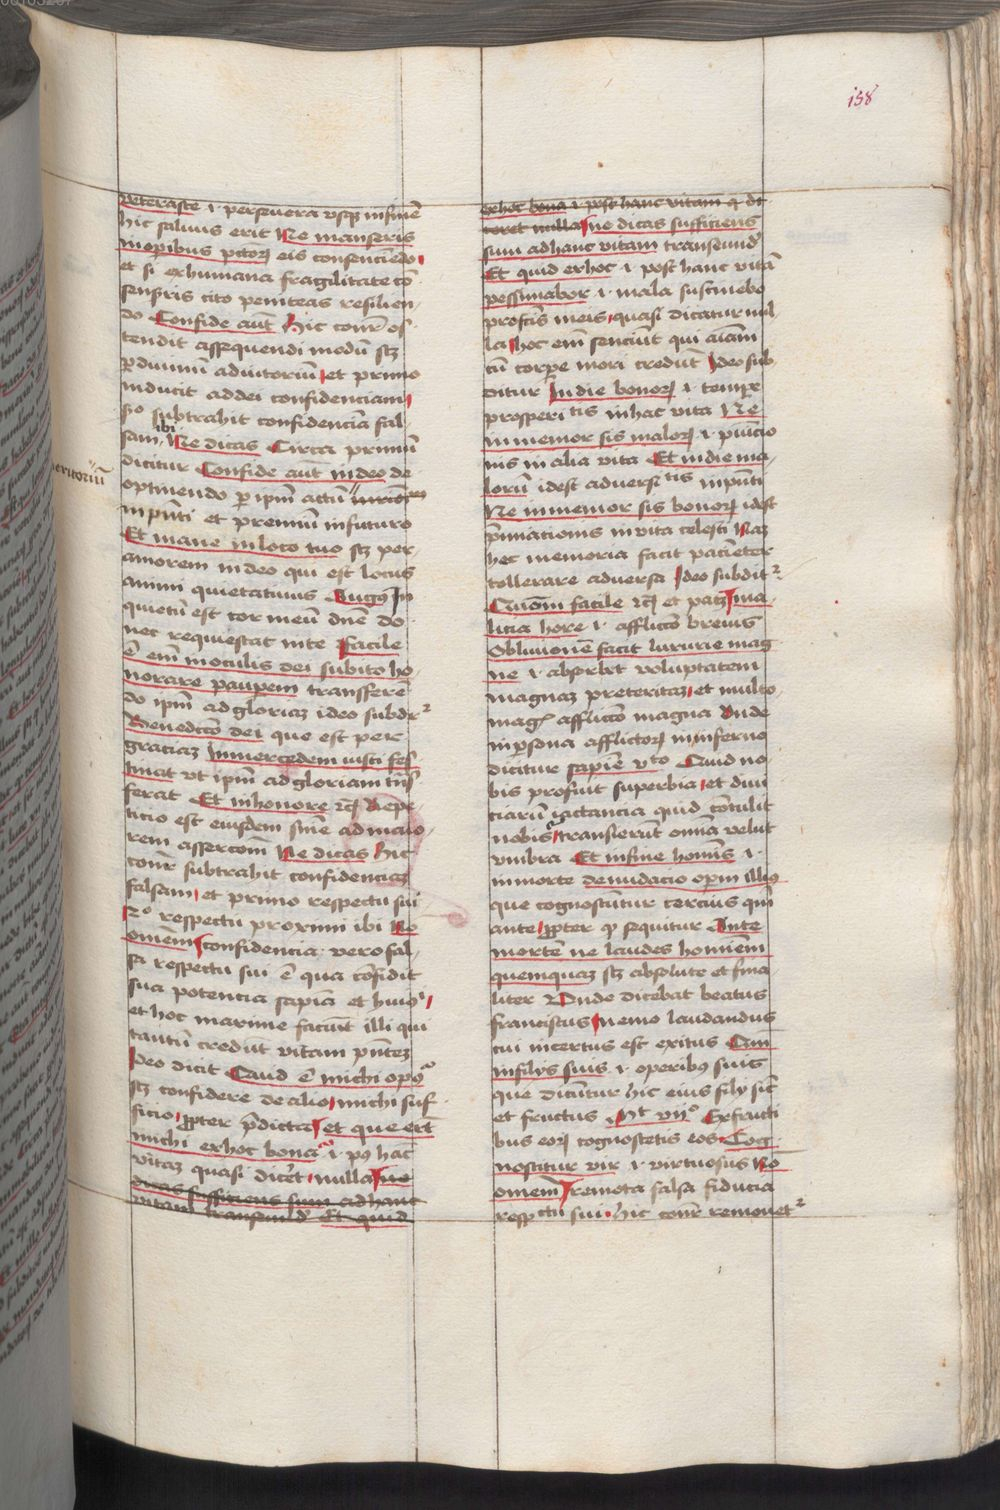 158
veteraste .i. persevera usq; in finē
hic salvus erit Ne manseris
in operibus pctorꝝ eis consenciendo
et si ex humana fragilitate cō
senseris cito peniteas resilien
do Confide aūt hic conꝰ os
tendit assequendi modū scꝫ
ꝑ divinū adiutoriū et primo
inducit ad dei confidenciam
2o subtrahit confidenciā fal
sam ibi Ne dicas Circa primū
dicitur Confide aut in deo de
optinendo ꝑ ipm actū meritoriū
in pn̄ti et premiū in futuro
Et mane in loco tuo scꝫ per
amorem in deo qui est locus
animi quietativus Augꝰ In
quietū est cor meū dn̄e do
nec requiescat in te Facile
ē em̄ in oculis dei subito ho
norare pauperem transferē
do ipm̄ ad gloriaꝫ ideo subdr̄
Benedictō dei que est per
graciaꝫ In mercedem iusti fes
tinat ut ipm̄ ad gloriam trās
ferat Et in honore rcꝫ Repe
ticio est eiusdem sn̄ie ad maio
rem assercōm Ne dicas hic
conꝰ subtrahit confidenciaꝫ
falsam et primo respectu sui
2o respectu proximi ibi No
omnem confidencia vero fal
sa respectu sui ē qua cōfidit
sua potencia sapiā et huiꝰ
et hoc maxime faciūt illi qui
tantū credūt vitam pn̄teꝫ
Ideo dicit Quid ē michi opꝰ
scꝫ confidere de alio michi suf
ficio ꝓpter p̄dicta et que erūt
michi ex hoc bona .i. pꝰ hāc
vitaꝫ quasi dicet nulla Ne
dicas sufficiens sum ad hanc
vitam transeund' Et quid
ex hoc bona .i. post hanc vitam q di
ceret nulla Ne dicas sufficiens
sum ad hanc vitam transeund'
Et quid ex hoc .i. post hanc vitā
pessimabor .i. mala sustinebo
pro fctis meis quasi dicatur nul
la hoc em̄ senciūt qui aīam
cū corpe mori credūt Ideo sub
ditur In die bonorꝝ .i. tempe
prosperitatis in hac vita Ne
immemor sis malorꝝ .i. punicio
nis in alia vita Et in die ma
lorū idest adversitatis in pn̄ti
Ne immemor sis bonorꝝ idest
p̄miacionis in vita celesti Naꝫ
hec memoria facit pacienter
tollerare adversa Ideo subditr
Quom̄ facile rcꝫ et patꝫ Ma
licia hore .i. afflictō brevis
Oblivionē facit luxurie mag
ne .i. absorbet voluptatem
magnaꝫ preteritaꝫ et multo
magꝭ afflictō magna Unde
in ꝑsona afflictorꝝ in inferno
dicitur sapiē vto Quid no
bis profuit superbia et divi
ciarū iactancia quid cōtulit
nobis transierūt omīa velut
umbra Et in fine hominis .i.
in morte denudacio operum illiꝰ
que cognoscūtur tercius qm̄
ante ꝓpter qd sequitur Ante
mortem ne laudes hominem
quemquaꝫ scꝫ absolute et fina
liter Unde dicebat beatus
franciscus Nemo laudandus
cui incertus est exitus Qm̄
in filijs suis .i. operibꝰ suis
que dicūtur hic eius filij sic
et fructus Mt viiº Ex fructi
bus eorꝝ cognoscetis eos Cog
noscitur vir .i. virtuosus No
omnem remota falsa fiducia
respectu sui hic conꝰ removet